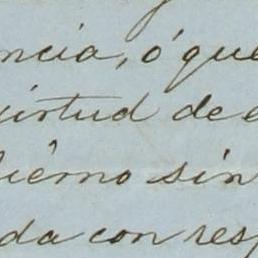 ncia, ó que
virtud de e
bierno sin
da con resp